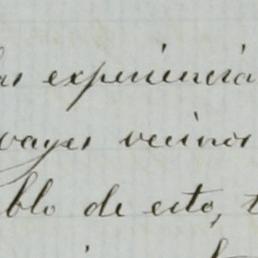 as experiencia
vayes vecinos
blo de esto, t